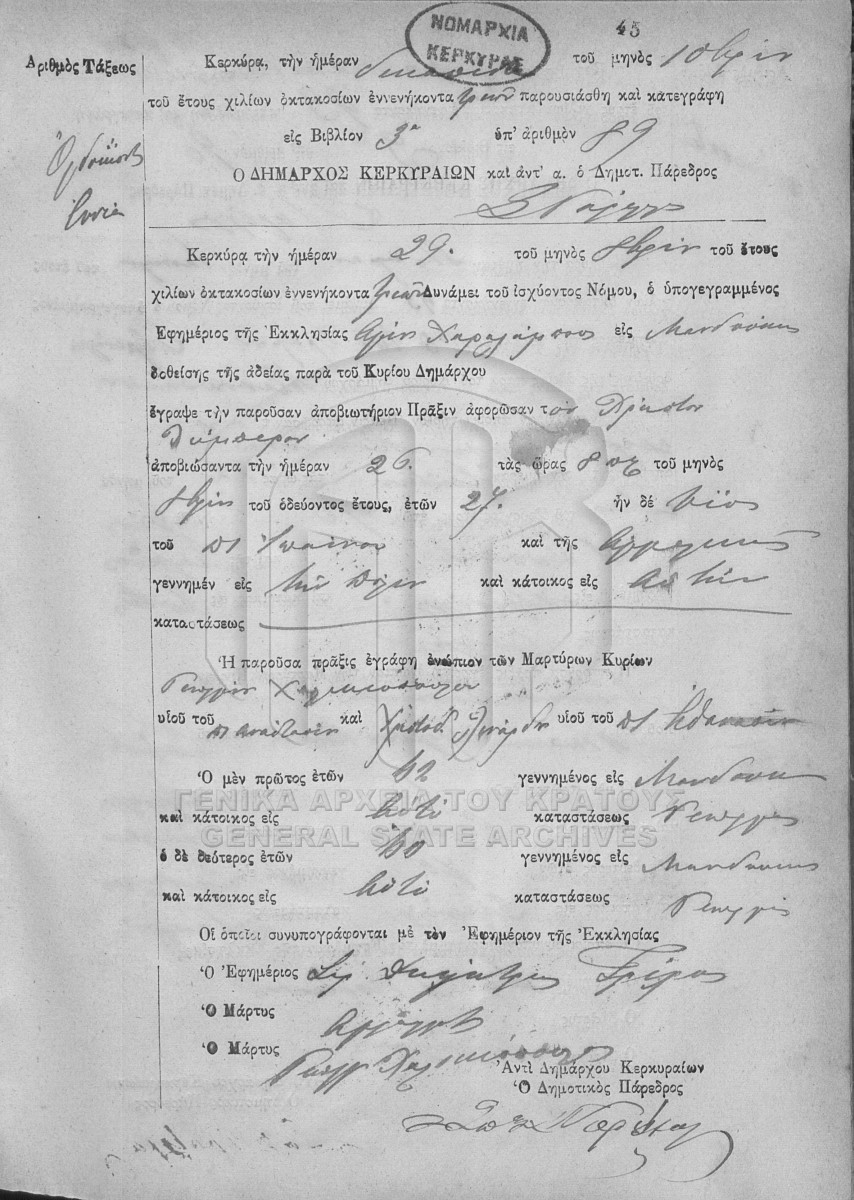 45
ΝΟΜΑΡΧΙΑ
ΚΕΡΚΥΡΑΣ
Ἀριθμὸς Τάξεως
Ὀγδοήκοντα
ἐννέα
Κερκύρᾳ, τὴν ἡμέραν τοῦ μηνὸς 10βρίου
τοῦ ἔτους χιλίων ὀκτακοσίων ἐννενήκοντα τριῶν παρουσιάσθη καὶ κατεγράφη
εἰς Βιβλίον 3ον ὑπ' ἀριθμὸν 89
Ο ΔΗΜΑΡΧΟΣ ΚΕΡΚΥΡΑΙΩΝ καὶ ἀντ' α. ὁ Δημοτ. Πάρεδρος
Κερκύρᾳ τὴν ἡμέραν 29. τοῦ μηνὸς 8βρίου τοῦ ἔτους
χιλίων ὀκτακοσίων ἐννενήκοντα τριῶν Δυνάμει τοῦ ἰσχύοντος Νόμου, ὁ ὑπογεγραμμένος
Ἐφημέριος τῆς Ἐκκλησίας Ἁγίου Χαραλάμπους εἰς Μανδούκι
δοθείσης τῆς ἀδείας παρὰ τοῦ Κυρίου Δημάρχου
ἔγραψε τὴν παροῦσαν ἀποβιωτήριον Πρᾶξιν ἀφορῶσαν τὸν Χρῆστον
ἀποβιώσαντα τὴν ἡμέραν 26. τὰς ὥρας 8 τοῦ μηνὸς
8βρίου τοῦ ὁδεύοντος ἔτους, ἐτῶν 27. ἦν δὲ υἱὸς
τοῦ καὶ τῆς Ἀγγελικῆς
γεννημέν εἰς τὴν πόλιν καὶ κάτοικος εἰς αὐτήν
καταστάσεως
Ἡ παροῦσα πρᾶξις ἐγράφη ἐνώπιον τῶν Μαρτύρων Κυρίων
Γεωργίου Χαλικιοπούλου
υἱοῦ τοῦ π Ἀναστασίου καὶ υἱοῦ τοῦ π Ἀθανασίου
Ὁ μὲν πρῶτος ἐτῶν 62 γεννημένος εἰς Μανδούκι
καὶ κάτοικος εἰς αὐτὸ καταστάσεως Γεωργὸς
ὁ δὲ δεύτερος ἐτῶν 60 γεννημένος εἰς Μανδούκι
καὶ κάτοικος εἰς αὐτὸ καταστάσεως Γεωργὸς
Οἱ ὁποῖοι συνυπογράφονται μὲ τὸν Ἐφημέριον τῆς Ἐκκλησίας
Ὁ Ἐφημέριος
Ὁ Μάρτυς
Ὁ Μάρτυς Γεωργ Χαλικιόπουλος
Ἀντὶ Δημάρχου Κερκυραίων
Ὁ Δημοτικὸς Πάρεδρος
ΓΕΝΙΚΑ ΑΡΧΕΙΑ ΤΟΥ ΚΡΑΤΟΥΣ
GENERAL STATE ARCHIVES